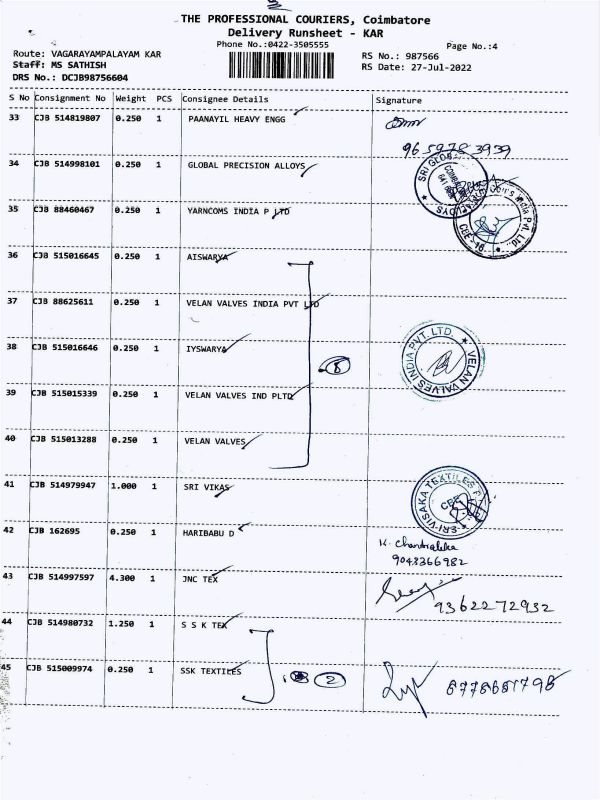 THE PROFESSIONAL COURIERS, Coimbatore
Delivery Runsheet - KAR
Phone No.:0422-3505555
Page No.:4
Route: VAGARAYAMPALAYAM KAR
RS No.: 987566
Staff: MS SATHISH
RS Date: 27-Jul-2022
DRS No.: DCJB98756604
S No Consignment No Weight PCS Consignee Details Signature
33 CJB 514819807 0.250 1 PAANAYIL HEAVY ENGG
9659783939
34 CJB 514998101 0.250 1 GLOBAL PRECISION ALLOYS
SRI GLOBAL
35 CJB 88460467 0.250 1 YARNCOMS INDIA P LTD
India Pvt. Ltd.
36 CJB 515016645 0.250 1 AISWARYA
37 CJB 88625611 0.250 1 VELAN VALVES INDIA PVT LTD
38 CJB 515016646 0.250 1 IYSWARYA
8
VELAN VALVES INDIA PVT. LTD.
39 CJB 515015339 0.250 1 VELAN VALVES IND PLTD
40 CJB 515013288 0.250 1 VELAN VALVES
41 CJB 514979947 1.000 1 SRI VIKAS
SRI-VISAKA TEXTILES
CBE
42 CJB 162695 0.250 1 HARIBABU D
K. Chandraleka
9043366982
43 CJB 514997597 4.300 1 JNC TEX
9362272932
44 CJB 514980732 1.250 1 S S K TEX
45 CJB 515009974 0.250 1 SSK TEXTILES
2